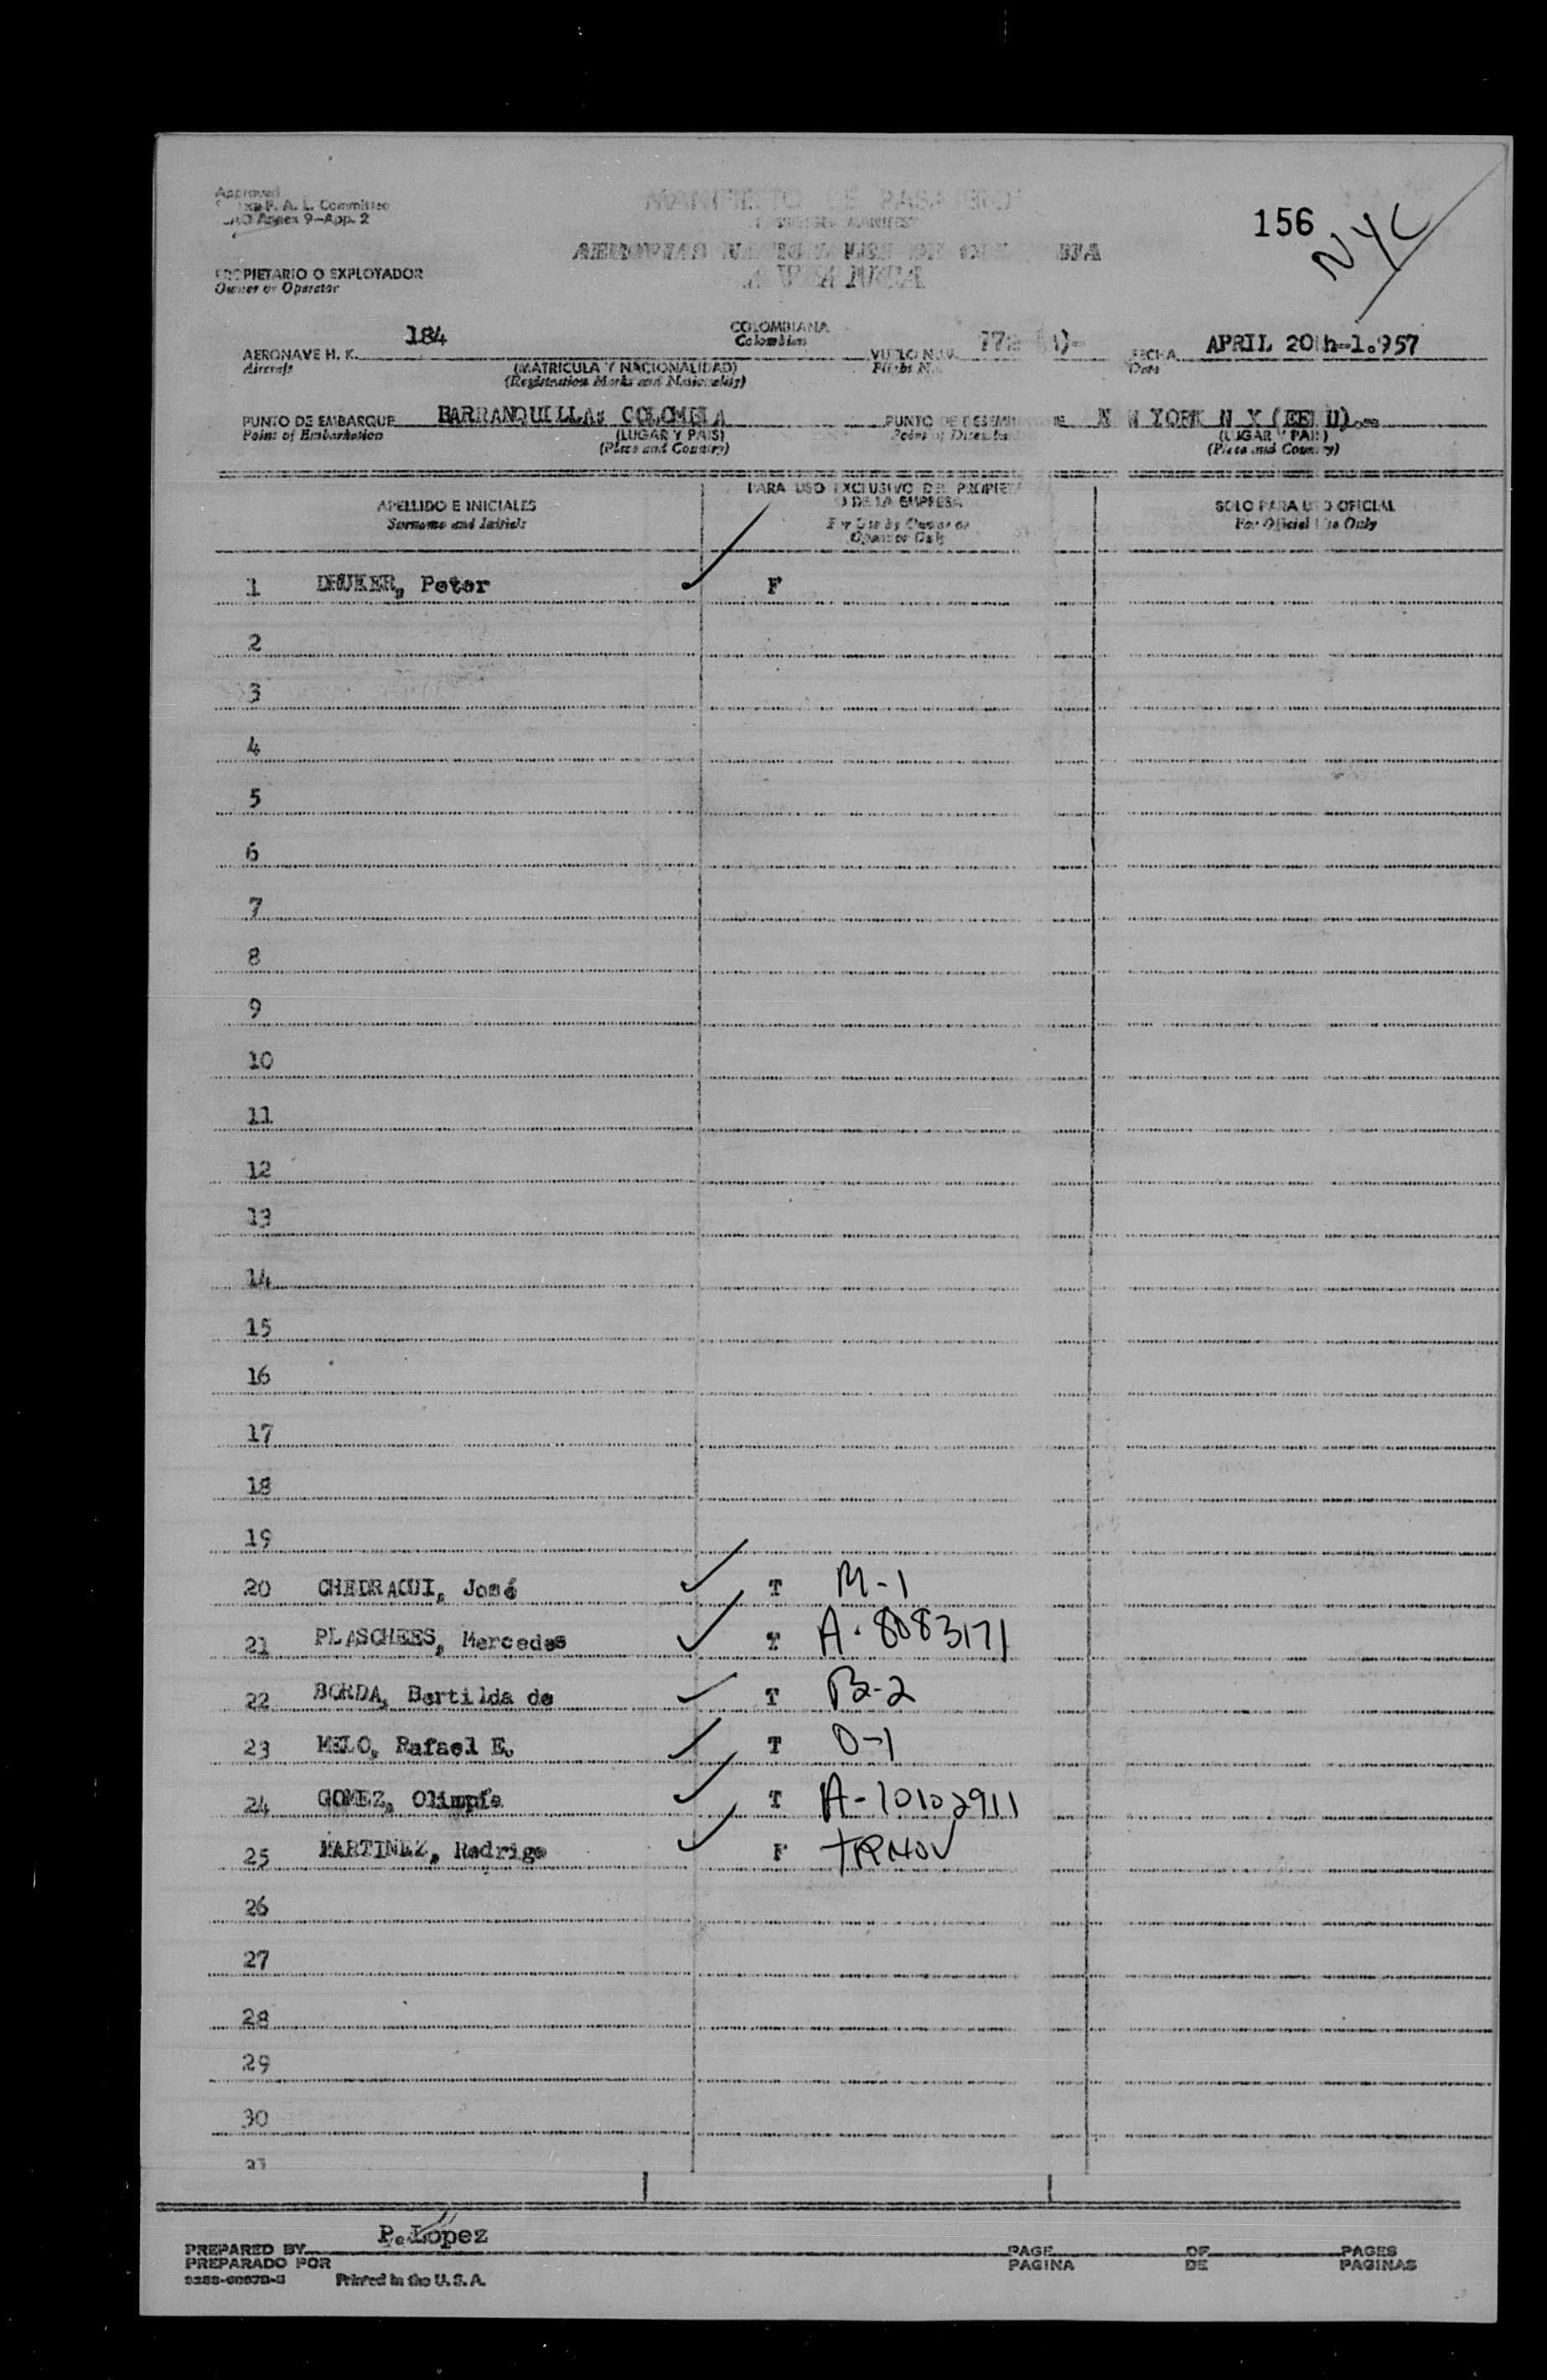 Approved
F. A. L. Committee
Annex 9-App. 2
MANIFIESTO DE PASAJEROS
156
NYC
PROPIETARIO O EXPLOTADOR
Owner or Operator
184
COLOMBIANA
Colombian
AERONAVE H. K.
Aircraft
(MATRICULA Y NACIONALIDAD)
(Registration Marks and Nationality)
VUELO
FECHA APRIL 20th-1.957
Date
PUNTO DE EMBARQUE BARRANQUILLA: COLOMBIA
Point of Embarkation
(LUGAR Y PAIS)
(Place and Country)
PUNTO DE
Point of
YORK N Y (EE U).
(LUGAR Y PAIS)
(Place and Country)
APELLIDO E INICIALES
Surname and Initials
PARA USO EXCLUSIVO DEL
O DE LA EMPRESA
For Use by Owner or
Operator Only
SOLO PARA USO OFICIAL
For Official Use Only
1 DRUKER, Peter F
2
3
4
5
6
7
8
9
10
11
12
13
14
15
16
17
18
19
20 CHEDRAOUI, José T M-1
21 PLASCHEES, Mercedes T A-8083171
22 BORDA, Bertilda de T B-2
23 MELO, Rafael E. T O-1
24 GOMEZ, Olimpía T A-10102911
25 MARTINEZ, Rodrigo F
26
27
28
29
30
P. Lopez
PREPARED BY
PREPARADO POR
PAGE OF PAGES
PAGINA DE PAGINAS
Printed in the U. S. A.